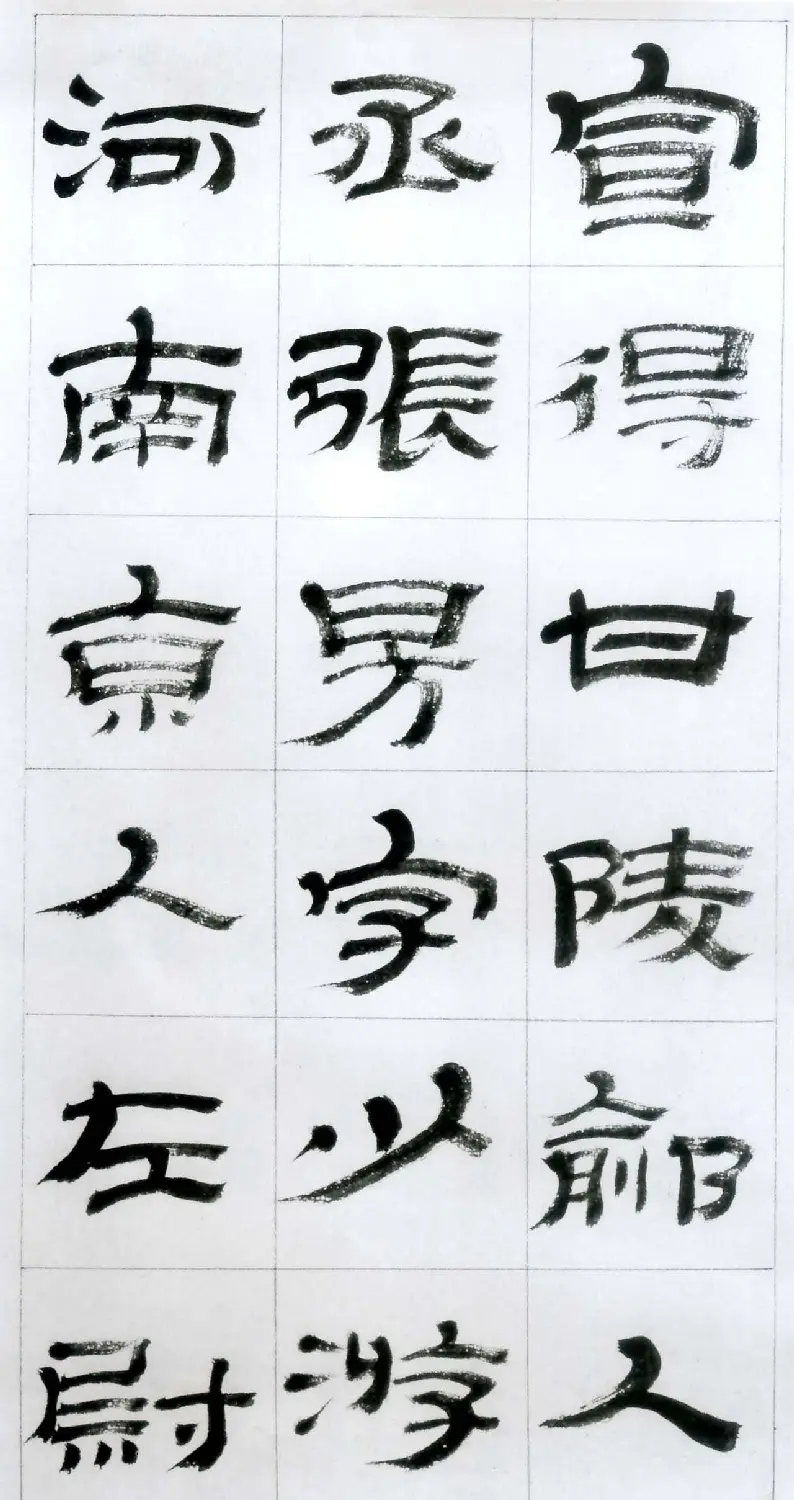 宣得甘陵鄃人
丞張男字以游
河南京人左尉